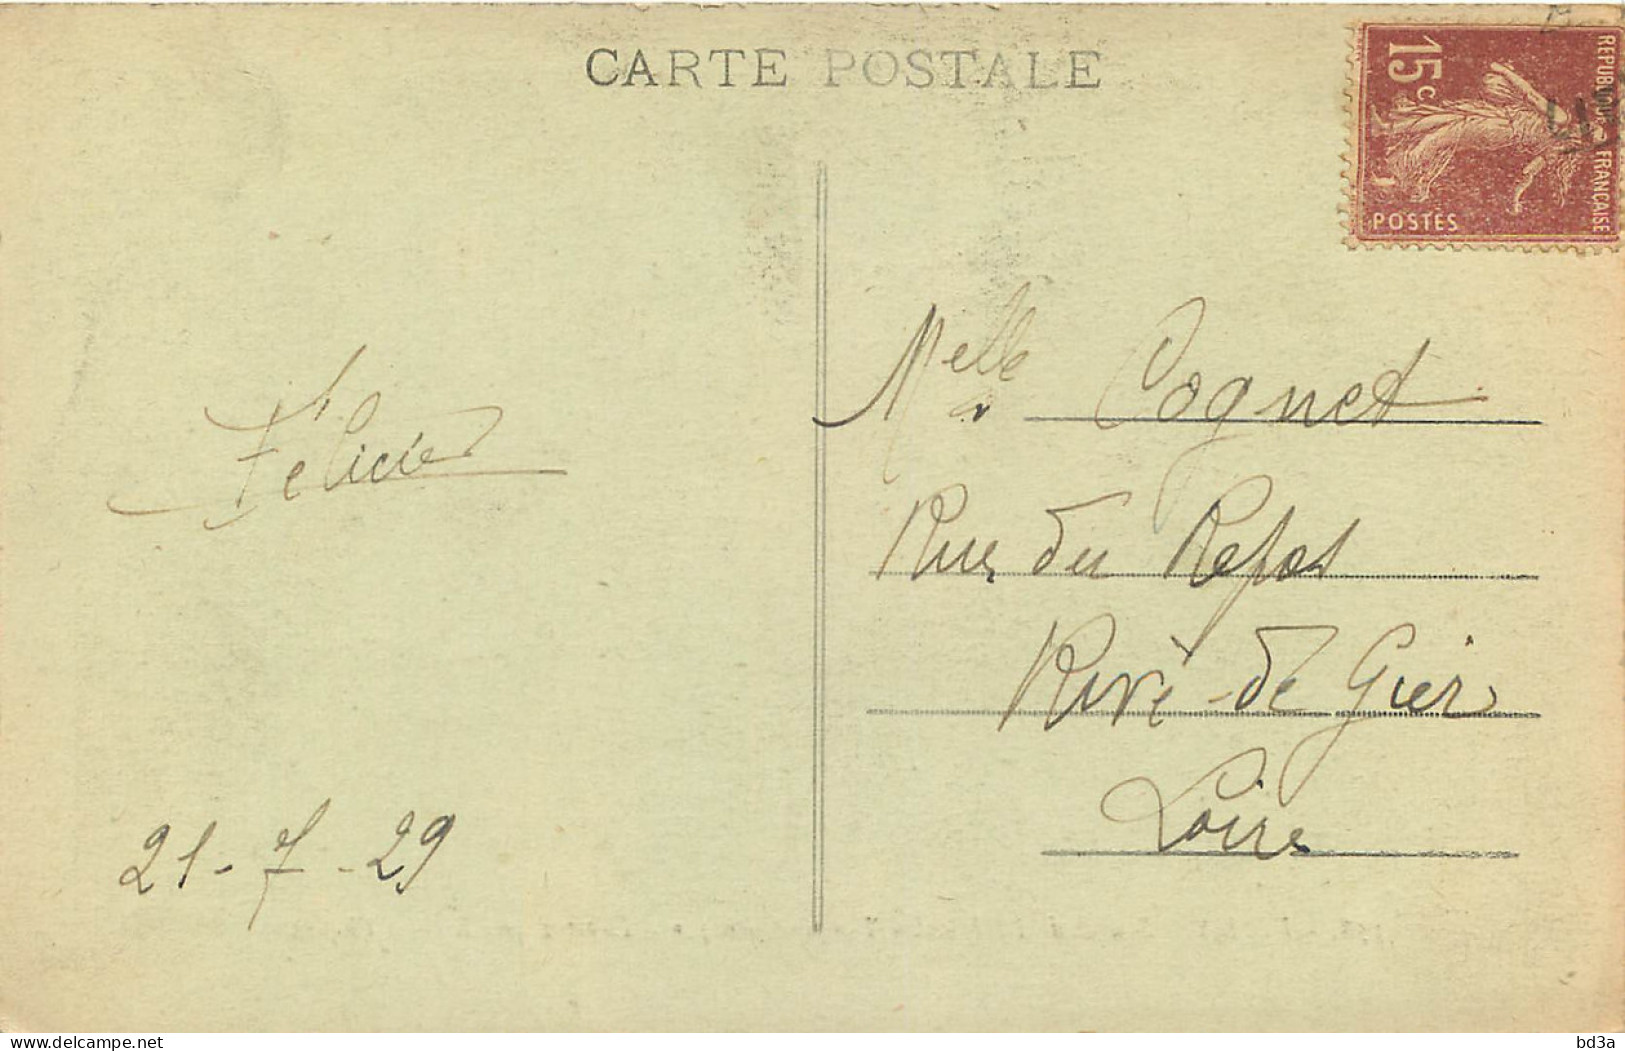 CARTE POSTALE
15c
REPUBLIQUE FRANÇAISE
POSTES
Melle Cognet
Félicie
Rue du Repos
Rive-de Gier
Loire
21-7-29
www.delcampe.net
bd3a